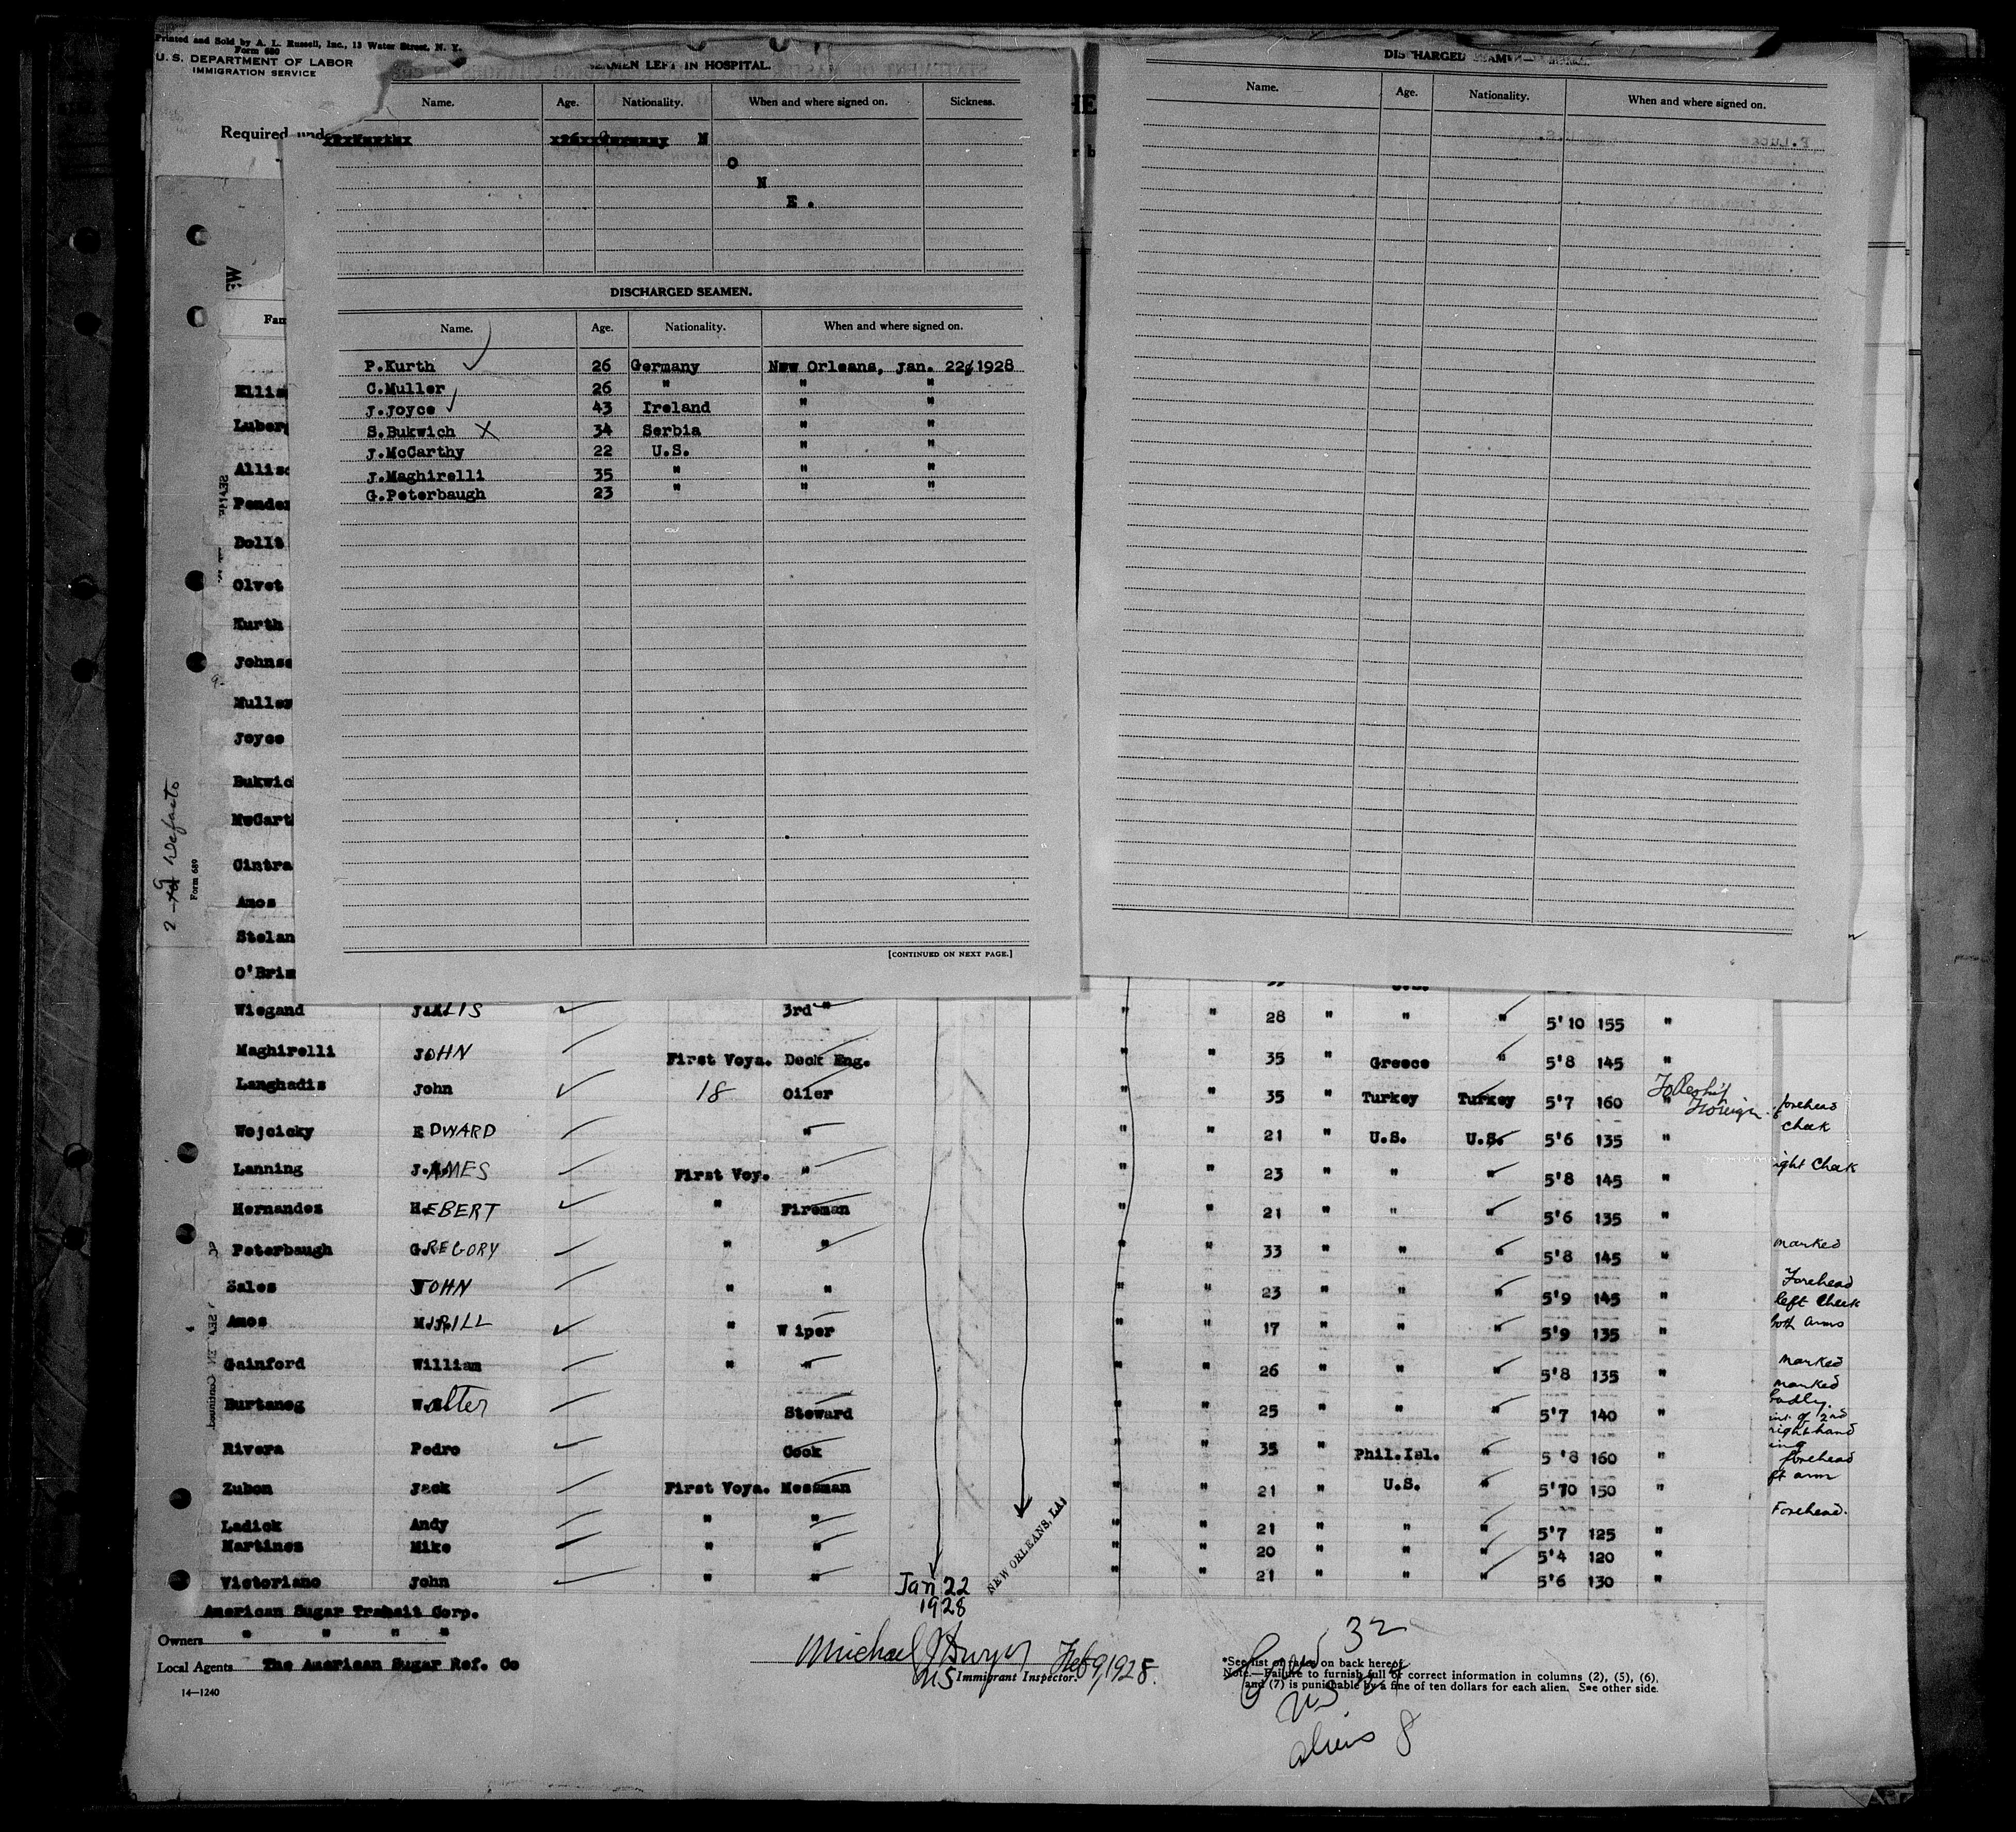 Printed and Sold by A. L. Russell, Inc., 13 Water Street, N. Y.
Form 680
U. S. DEPARTMENT OF LABOR
IMMIGRATION SERVICE
Required under
SEAMEN LEFT IN HOSPITAL.
Name. Age. Nationality. When and where signed on. Sickness.
N
O
N
E .
DISCHARGED SEAMEN.
Name. Age. Nationality. When and where signed on.
P.Kurth 26 Germany New Orleans, Jan. 22, 1928
C.Muller 26 " " "
J.Joyce 43 Ireland " "
S.Bukwich X 34 Serbia " "
J.McCarthy 22 U.S. " "
J.Maghirelli 35 " " "
G.Peterbaugh 23 " " "
[CONTINUED ON NEXT PAGE.]
DISCHARGED SEAMEN—
Name. Age. Nationality. When and where signed on.
Fam
Ellis
Luberg
Alliso
Pender
Dollt
Olvet
Kurth
Johnso
Muller
Joyce
Bukwich
McCarth
Cintra
Amos
Stelan
O'Bri
Form 689
Wiegand 3rd " " " 28 " " " 5'10 155 "
Maghirelli JOHN First Voya. Deck Eng. " " 35 " Greece " 5'8 145 "
Langhadis John 18 Oiler " " 35 " Turkey Turkey 5'7 160 " Foreign
Wojcicky EDWARD " " " 21 " U.S. U.S. 5'6 135 "
Lanning JAMES First Voy. " " " 23 " " " 5'8 145 "
Hernandez HEBERT " Fireman " " 21 " " " 5'6 135 "
Peterbaugh GREGORY " " " " 33 " " " 5'8 145 "
Sales JOHN " " " " 23 " " " 5'9 145 "
Amos " Wiper " " 17 " " " 5'9 135 "
Gainford William " " " " 26 " " " 5'8 135 "
Burtaneg Walter Steward " " 25 " " " 5'7 140 "
Rivera Pedro Cook " " 35 " Phil.Isl. " 5'8 160 "
Zubon Jack First Voya. Messman " " 21 " U.S. " 5'10 150 "
Ladick Andy " " " " 21 " " " 5'7 125 "
Martines Mike " " " " 20 " " " 5'4 120 "
Victoriano John " " " " 21 " " " 5'6 130 "
forehead
cheek
ight Cheek
marked
Forehead
left Cheek
both arms
marked
marked
badly
right hand
forehead
ft arm
Forehead.
Jan 22
1928
NEW ORLEANS, LA.
American Sugar Transit Corp.
Owners " " " "
Local Agents The American Sugar Ref. Co
14—1240
Michael
US Immigrant Inspector. Feb 9, 1928.
32
*See list of races on back hereof
Note.—Failure to furnish full or correct information in columns (2), (5), (6),
and (7) is punishable by a fine of ten dollars for each alien. See other side.
US 24
aliens 8